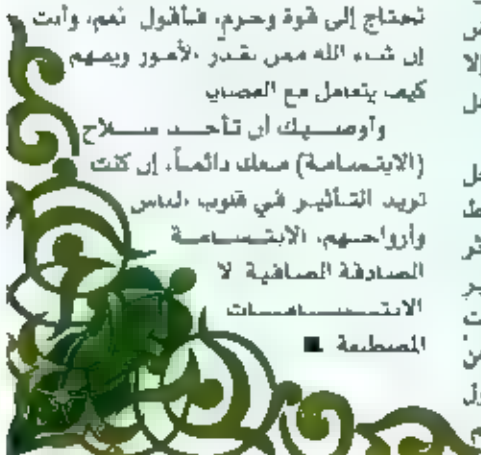 تحتاج إلى قوة وحزم، فأقول نعم، وأنت
إن شاء الله ممن يقدر الأمور ويفهم
كيف يتعامل مع القضايا
وأوصيك أن تأخذ سلاح
(الابتسامة) معك دائماً، إن كنت
تريد التأثير في قلوب الناس
وأرواحهم، الابتسامة
الصادقة الصافية لا
الابتسامات
المصطنعة ■